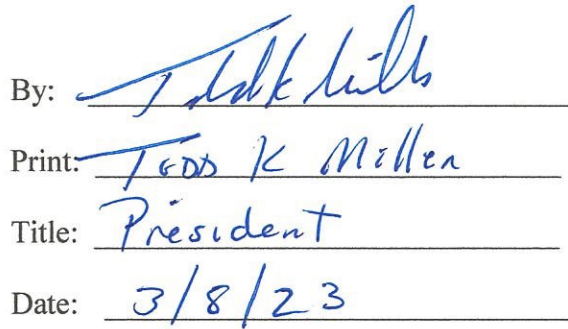 By: Todd K Miller
Print: Todd K Miller
Title: President
Date: 3/8/23